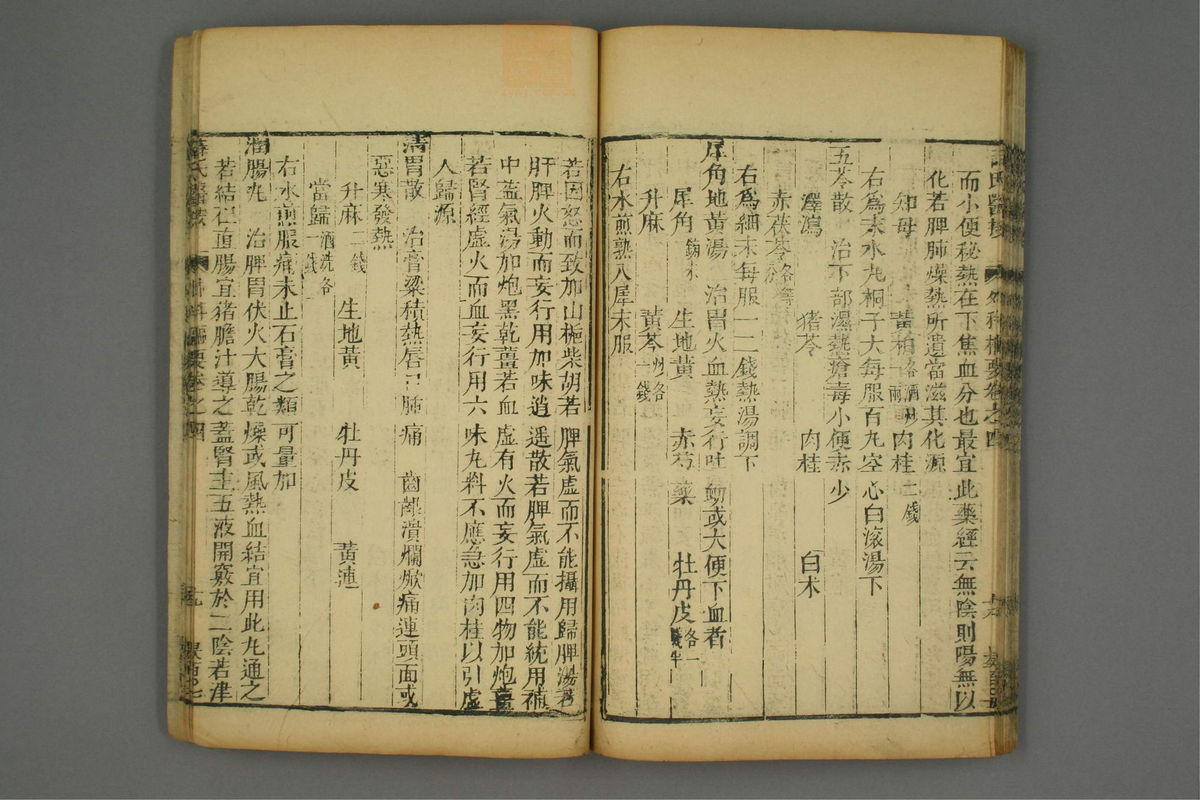 而小便秘熱在下焦血分也最宜此藥經云無陰則陽無以
化若脾肺燥熱所遺當滋其化源
知母 黃柏各酒炒一兩 肉桂二錢
右為末水丸桐子大每服百丸空心白滾湯下
五苓散 治下部濕熱瘡毒小便赤少
澤瀉 猪苓 肉桂 白术
赤茯苓各等分
右為細末每服一二錢熱湯調下
犀角地黃湯 治胃火血熱妄行吐衂或大便下血者
犀角鎊末 生地黃 赤芍藥 牡丹皮各一錢半
升麻 黃芩炒各一錢
右水煎熟入犀末服
若因怒而致加山梔柴胡若脾氣虛而不能攝用歸脾湯若
肝脾火動而妄行用加味逍遥散若脾氣虛而不能統用補
中益氣湯加炮黑乾薑若血虛有火而妄行用四物加炮薑
若腎經虛火而血妄行用六味丸料不應急加肉桂以引虛
人歸源
清胃散 治膏粱積熱唇口肺痛 齒齦潰爛焮痛連頭面或
惡寒發熱
升麻二錢 生地黃 牡丹皮 黃連
當歸酒洗各一錢
右水煎服痛未止石膏之類可量加
潤腸丸 治脾胃伏火大腸乾燥或風熱血結宜用此丸通之
若結在直腸宜猪膽汁導之蓋腎主五液開竅於二陰若津